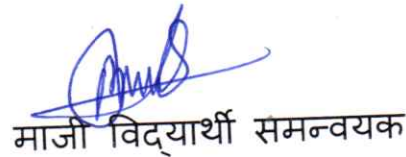 माजी विद्यार्थी समन्वयक